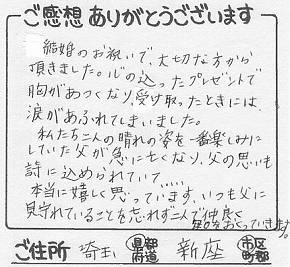 ご感想ありがとうございます
結婚のお祝いで、大切な方から
頂きました。心の込ったプレゼントで
胸があつくなり、受け取ったときには
涙があふれてしまいました。
私たち二人の晴れの姿を一番楽しみに
していた父が急に亡くなり、父の思いも
詩に込められていて
本当に嬉しく思っています....。いつも父に
見守れていることを忘れず二人で仲良く
おくっていきます。
ご住所 埼玉 都道府県 新座 市区町郡